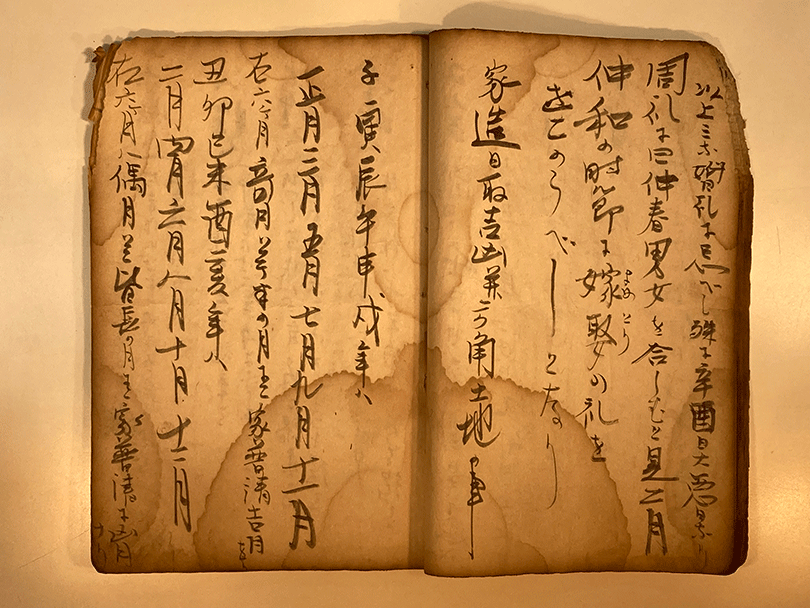 以上ミな婚礼に忌べし殊に辛酉日大悪日なり
周礼に曰仲春男女を合しむと見二月
仲和の時節に嫁娶の礼を
よめとり
をこのうべしとなり
家造日取吉凶并方角土地の事
子寅辰午申戌年ハ
正月三月五月七月九月十一月
右六ヶ月奇月 家普請吉月
丑卯巳未酉亥年ハ
二月四月六月八月十月十二月
右六ヶ月ハ偶月 皆 月 家普請に 月